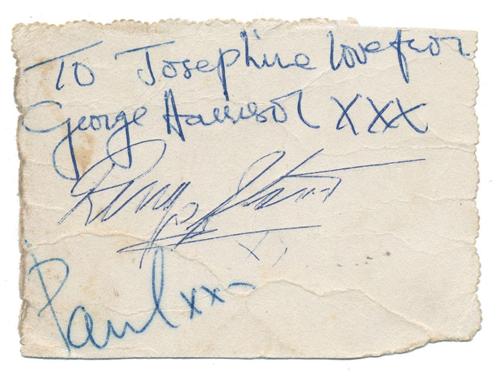 To Josephine love from
George Harrison XXX
Ringo Starr
Paul xx